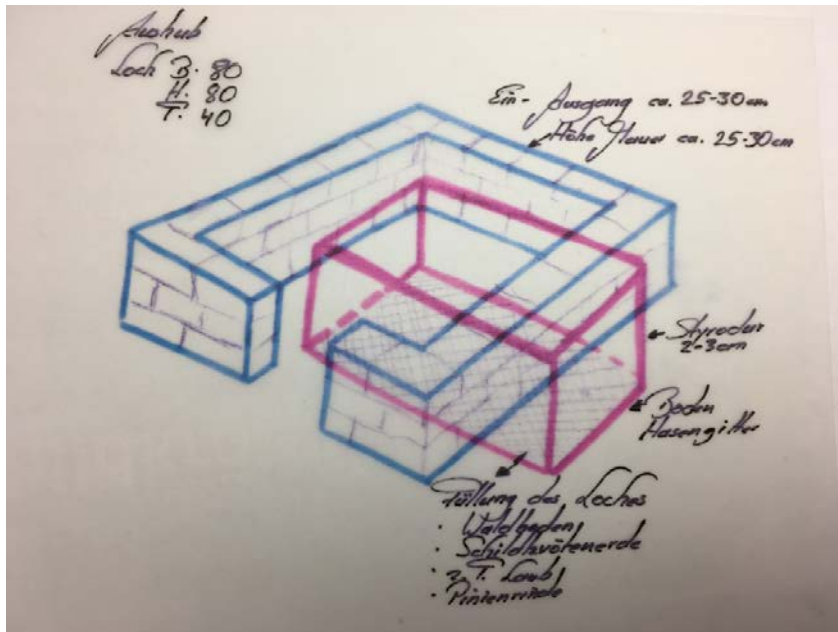 Aushub
Loch B. 80
H. 80
T. 40
Ein- Ausgang ca. 25-30cm
Höhe Mauer ca. 25-30cm
Styrodur
2-3cm
Boden
Hasengitter
Füllung des Loches
· Waldboden
· Schildkrötenerde
· z.T. Laub
· Pinienrinde